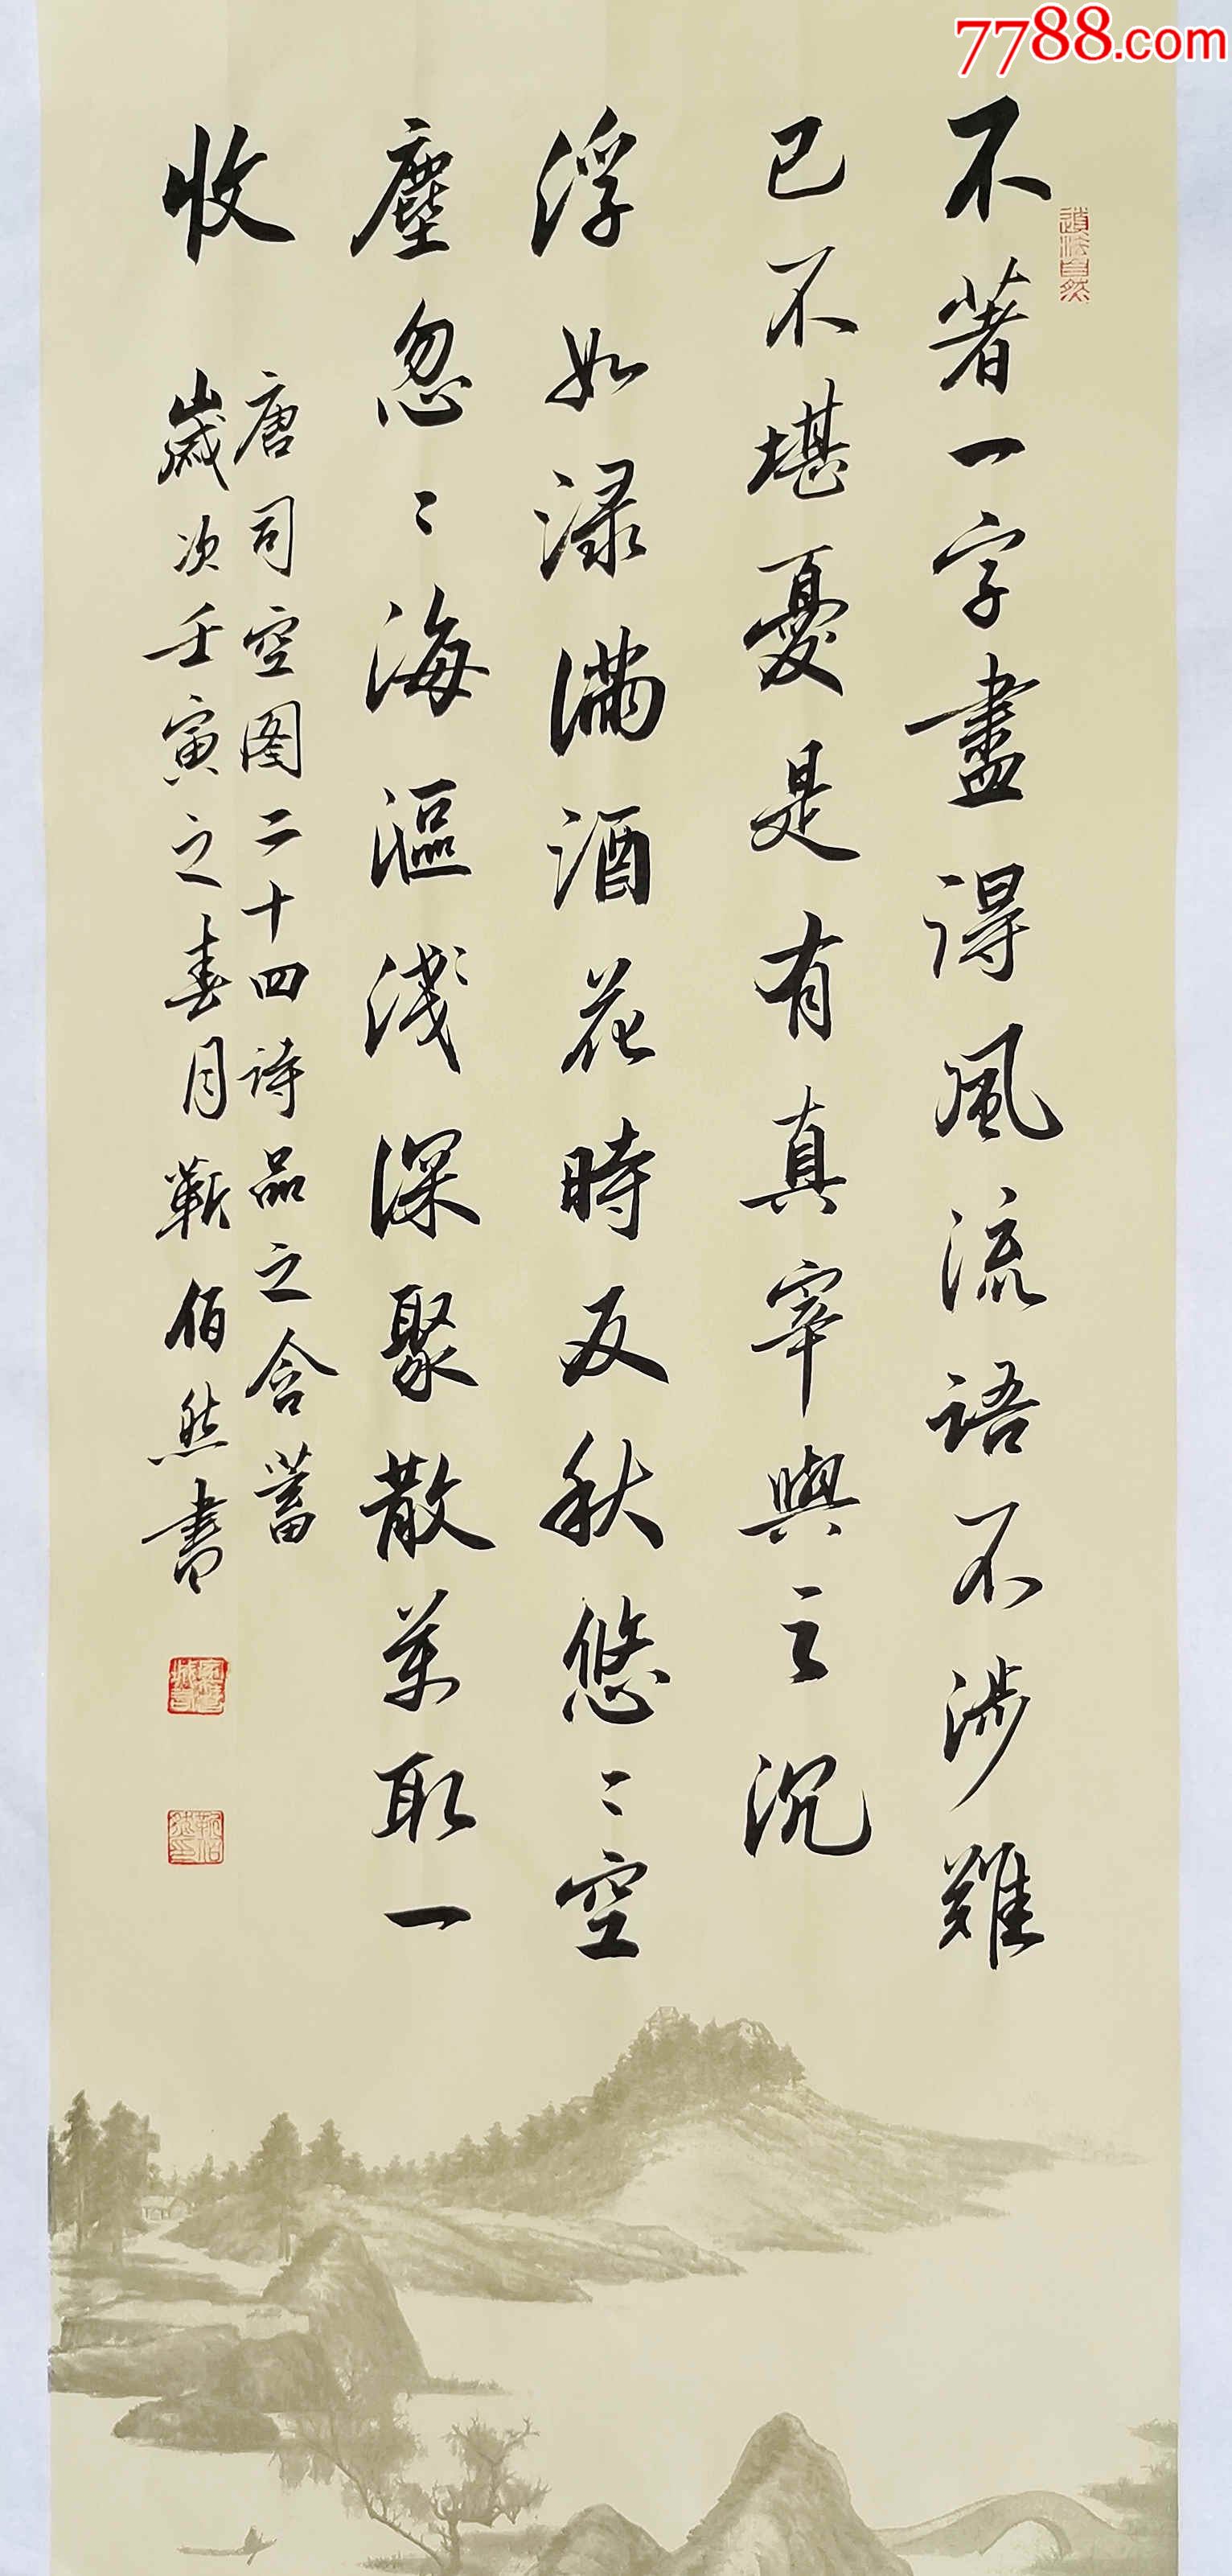 7788.com
道法自然
不著一字盡得風流語不涉難
已不堪憂是有真宰與之沉
浮如渌滿酒花時反秋悠〻空
塵忽〻海漚淺深聚散萬取一
收
唐司空图二十四詩品之含蓄
歲次壬寅之春月靳佰然書